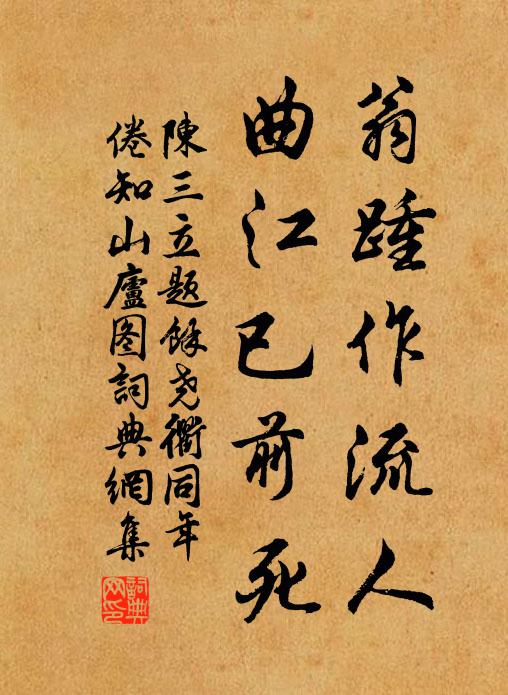 翁踵作流人
曲江已前死
陳三立題餘堯衢同年
倦知山廬图詞典網集
詞典網印